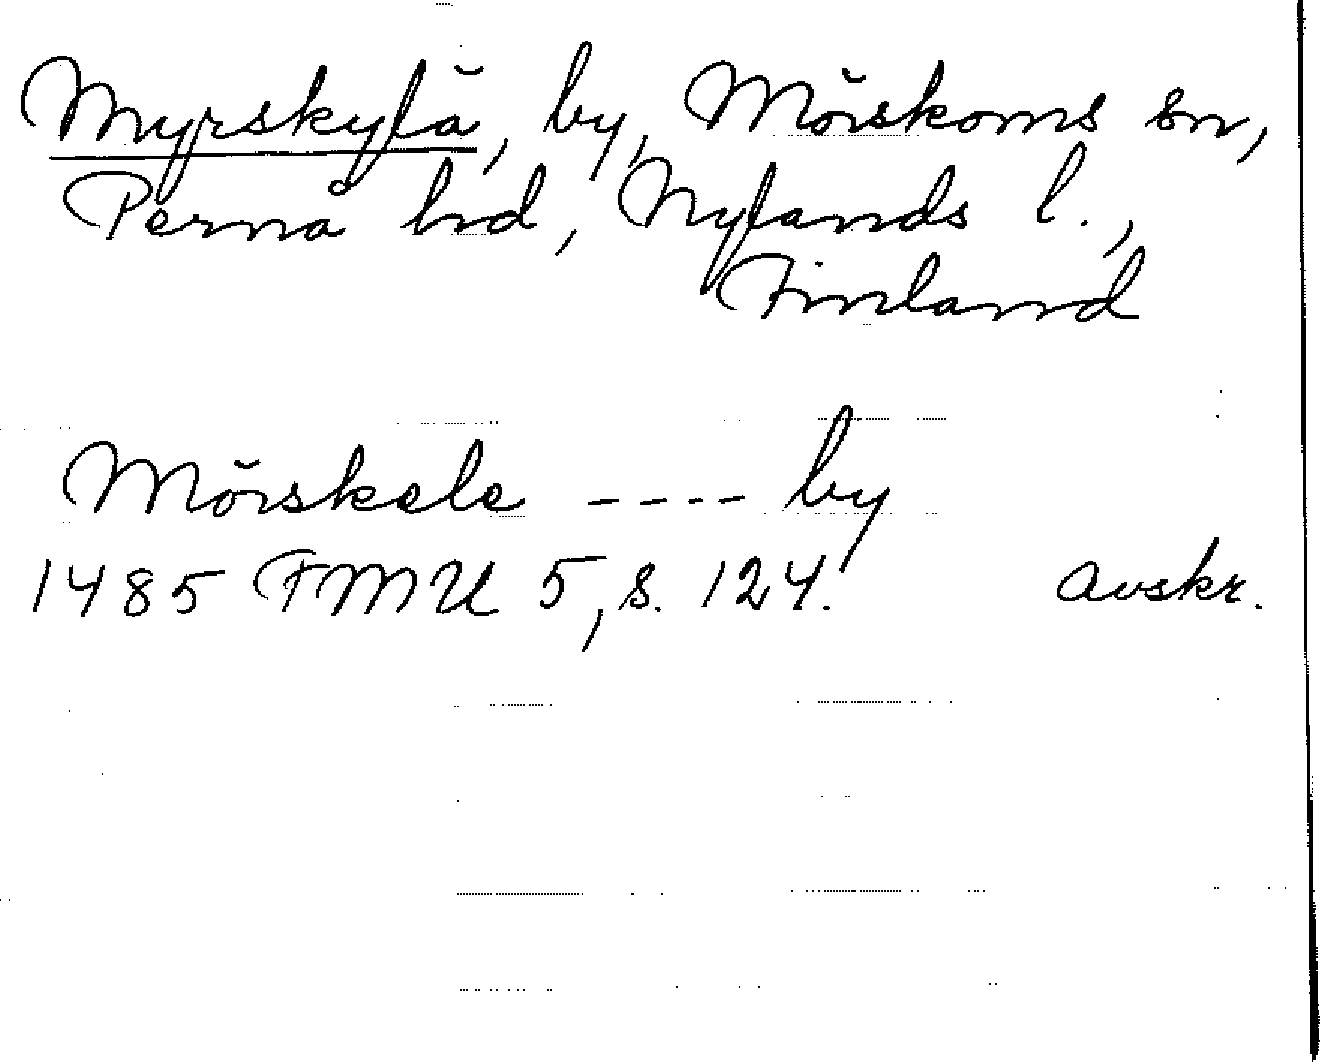 Myrskylä, by, Mörskoms sn,
Pernå hd, Nylands l.,
Finland
Mörskele ---- by
1485 FMU 5, s. 124. avskr.